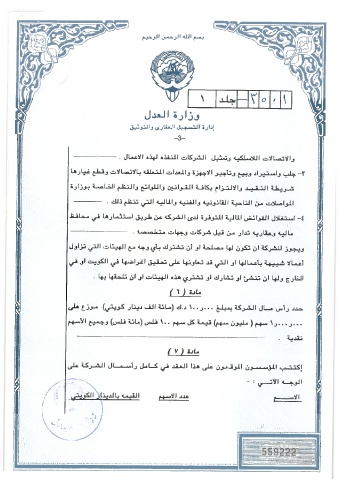 بسم الله الرحمن الرحيم
٣٥٠١ جلد ١
وزارة العدل
إدارة التسجيل العقارى والتوثيق
-3-
والاتصالات اللاسلكيه وتمثيل الشركات المنفذه لهذه الاعمال .
٣- جلب واستيراد وبيع وتأجير الاجهزة والمعدات المتعلقه بالاتصالات وقطع غيارها
شريطة التقيد والالتزام بكافة القوانين واللوائح والنظم الخاصة بوزارة
المواصلات من الناحية القانونيه والفنيه والماليه التى تنظم ذلك .
٤- استغلال الفوائض المالية المتوفرة لدى الشركه عن طريق استثمارها في محافظ
ماليه وعقاريه تدار من قبل شركات وجهات متخصصه .
ويجوز للشركة ان تكون لها مصلحة او أن تشترك بأي وجه مع الهيئات التي تزاول
أعمالا شبيهة بأعمالها او التي قد تعاونها على تحقيق اغراضها في الكويت او في
الخارج ولها ان تنشئ او تشارك او تشتري هذه الهيئات او ان تلحقها بها .
مادة (٦)
حدد رأس مال الشركة بمبلغ ١٠٠٫٠٠٠ د.ك (مائة الف دينار كويتي) موزع على
١٫٠٠٠٫٠٠٠ سهم (مليون سهم) قيمة كل سهم ١٠٠ فلس (مائة فلس) وجميع الأسهم
نقدية .
مادة (٧)
إكتتب المؤسسون الموقعون على هذا العقد في كامل رأسمال الشركة على
الوجه الآتي :
الاسم عدد الاسهم القيمه بالدينار الكويتي
559222